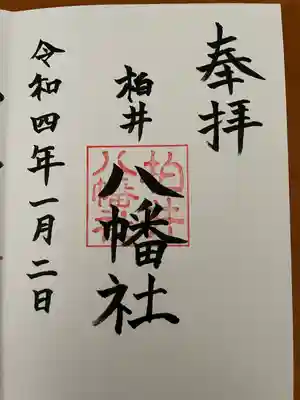 奉拝
柏井
八幡社
柏井
八幡社
令和四年一月二日